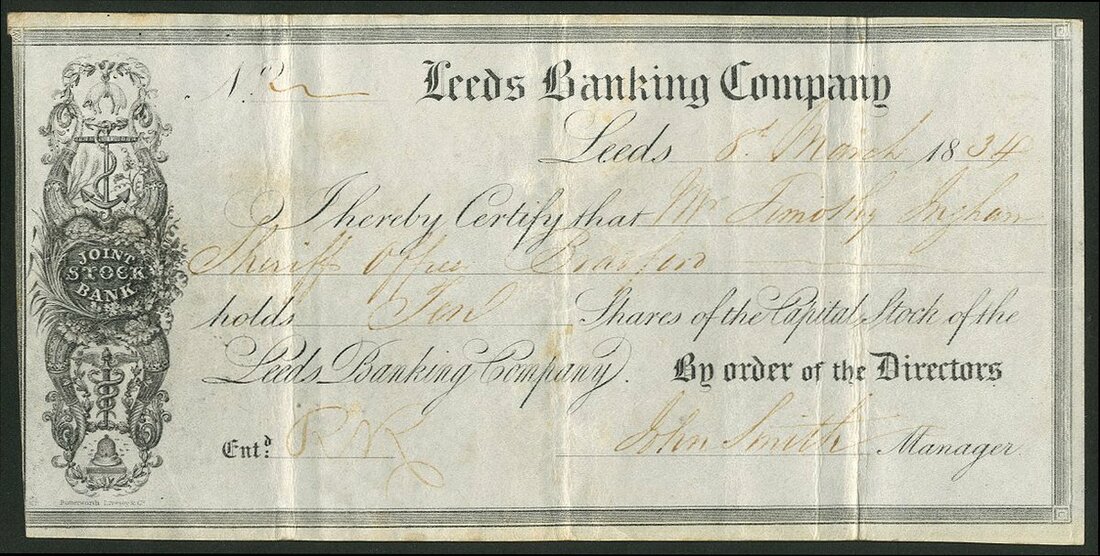 No. Leeds Banking Company
Leeds 8th March 1834
I hereby Certify that Mr Timothy Ingham
Sheriff Officer Bradford
holds Ten Shares of the Capital Stock of the
Leeds Banking Company. By order of the Directors
Entd. John Smith Manager
JOINT
STOCK
BANK
Butterworth Livesey & Co.